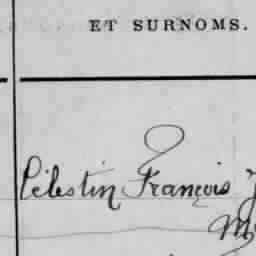 ET SURNOMS.
Célestin François